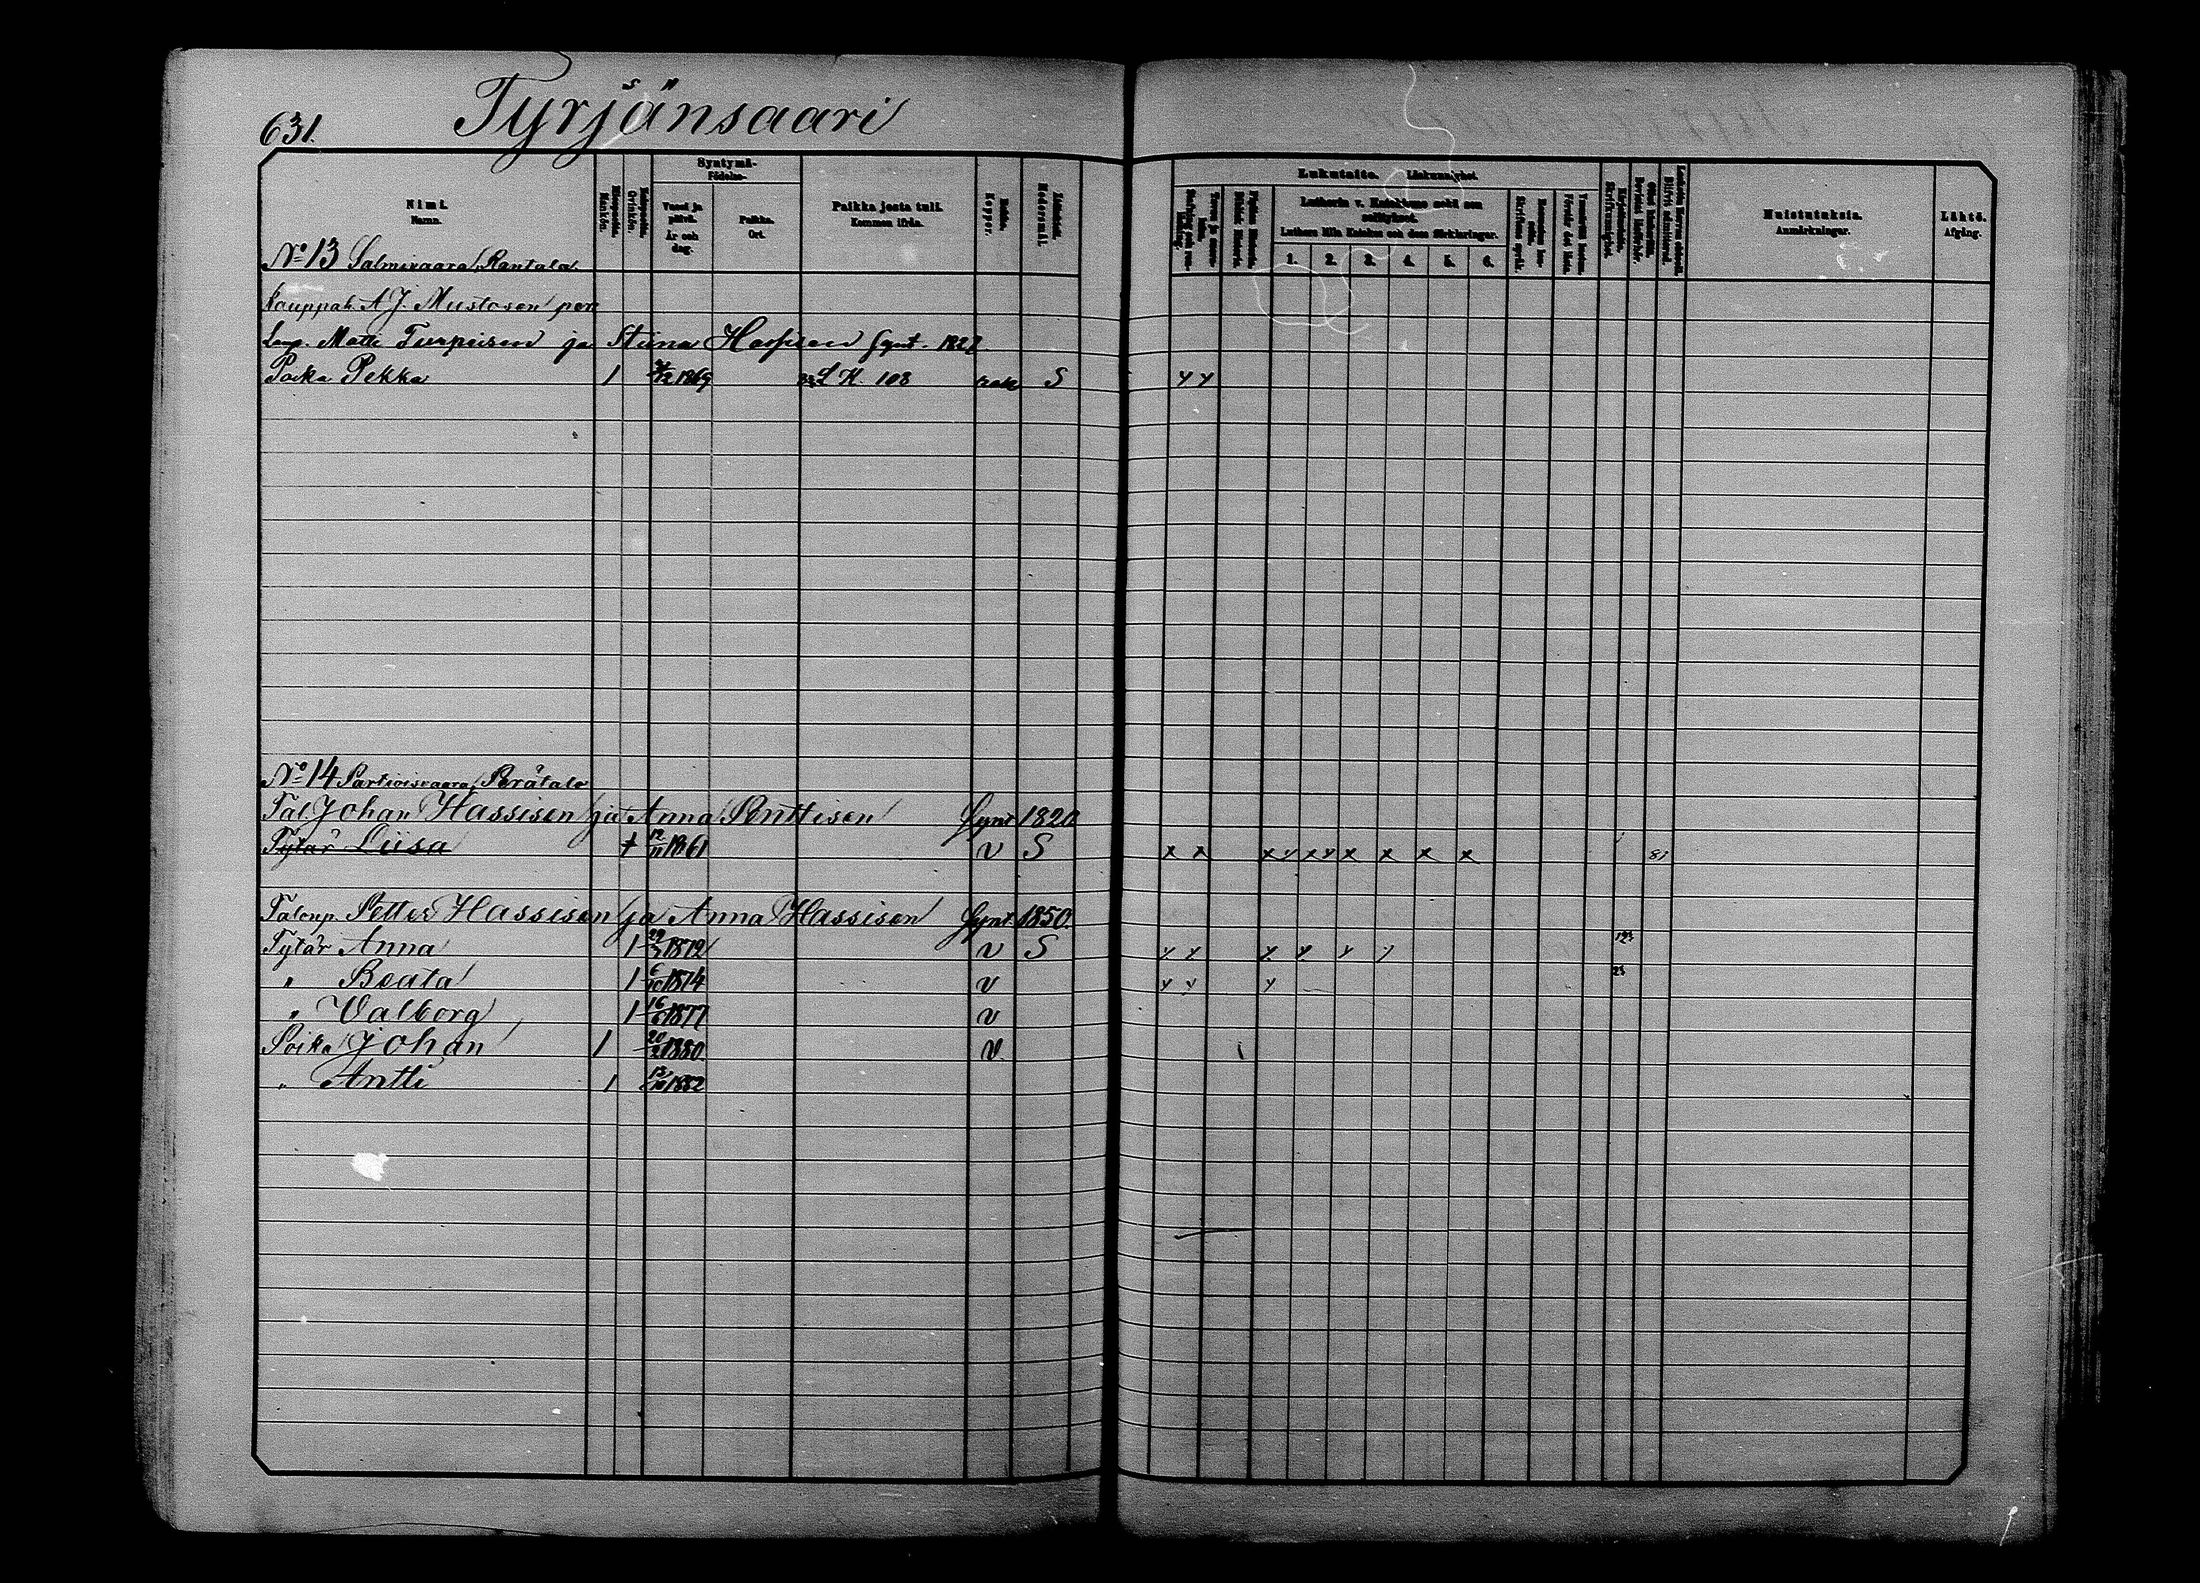 631.
Tyrjänsaari
Nimi.
Namn.
Miespuolia.
Mankön.
Vaimopuolia.
Qvinkön.
Syntymä-
Födelse-
Vuosi ja päivä.
År och dag.
Paikka.
Ort.
Paikka josta tuli.
Kommen ifrån.
Rokko.
Koppor.
Äidinkieli.
Modersmål.
Lukutaito. Läskunnighet.
Lutherin v. Katekismus sekä sen selitykset.
Luthers lilla Katekes och dess förklaringar.
1. 2. 3. 4. 5. 6.
Muistutuksia.
Anmärkningar.
Lähtö.
Afgång.
No 13 Salmivaara, Rantala
Kauppah. A J. Mustosen per
Lamp. Matti Turpeisen ja Stiina Hassisen Synt. 1827
Poika Pekka 1 1869 L K. 108 rok S y y
No 14 Partioisvaara, Perätalo
Tal. Johan Hassisen ja Anna Penttisen Synt 1820
Tytär Liisa 12/11 1861 v S x x x y x y x x x x 81
Taloup. Petter Hassisen ja Anna Hassisen Synt. 1850.
Tytär Anna 1 1872 v S y y y y y y
" Beata 1 6/10 1874 v y y y 23
" Valborg 1 16/6 1877 v
Poika Johan 1 20/2 1880. v
" Antti 1 13/10 1882